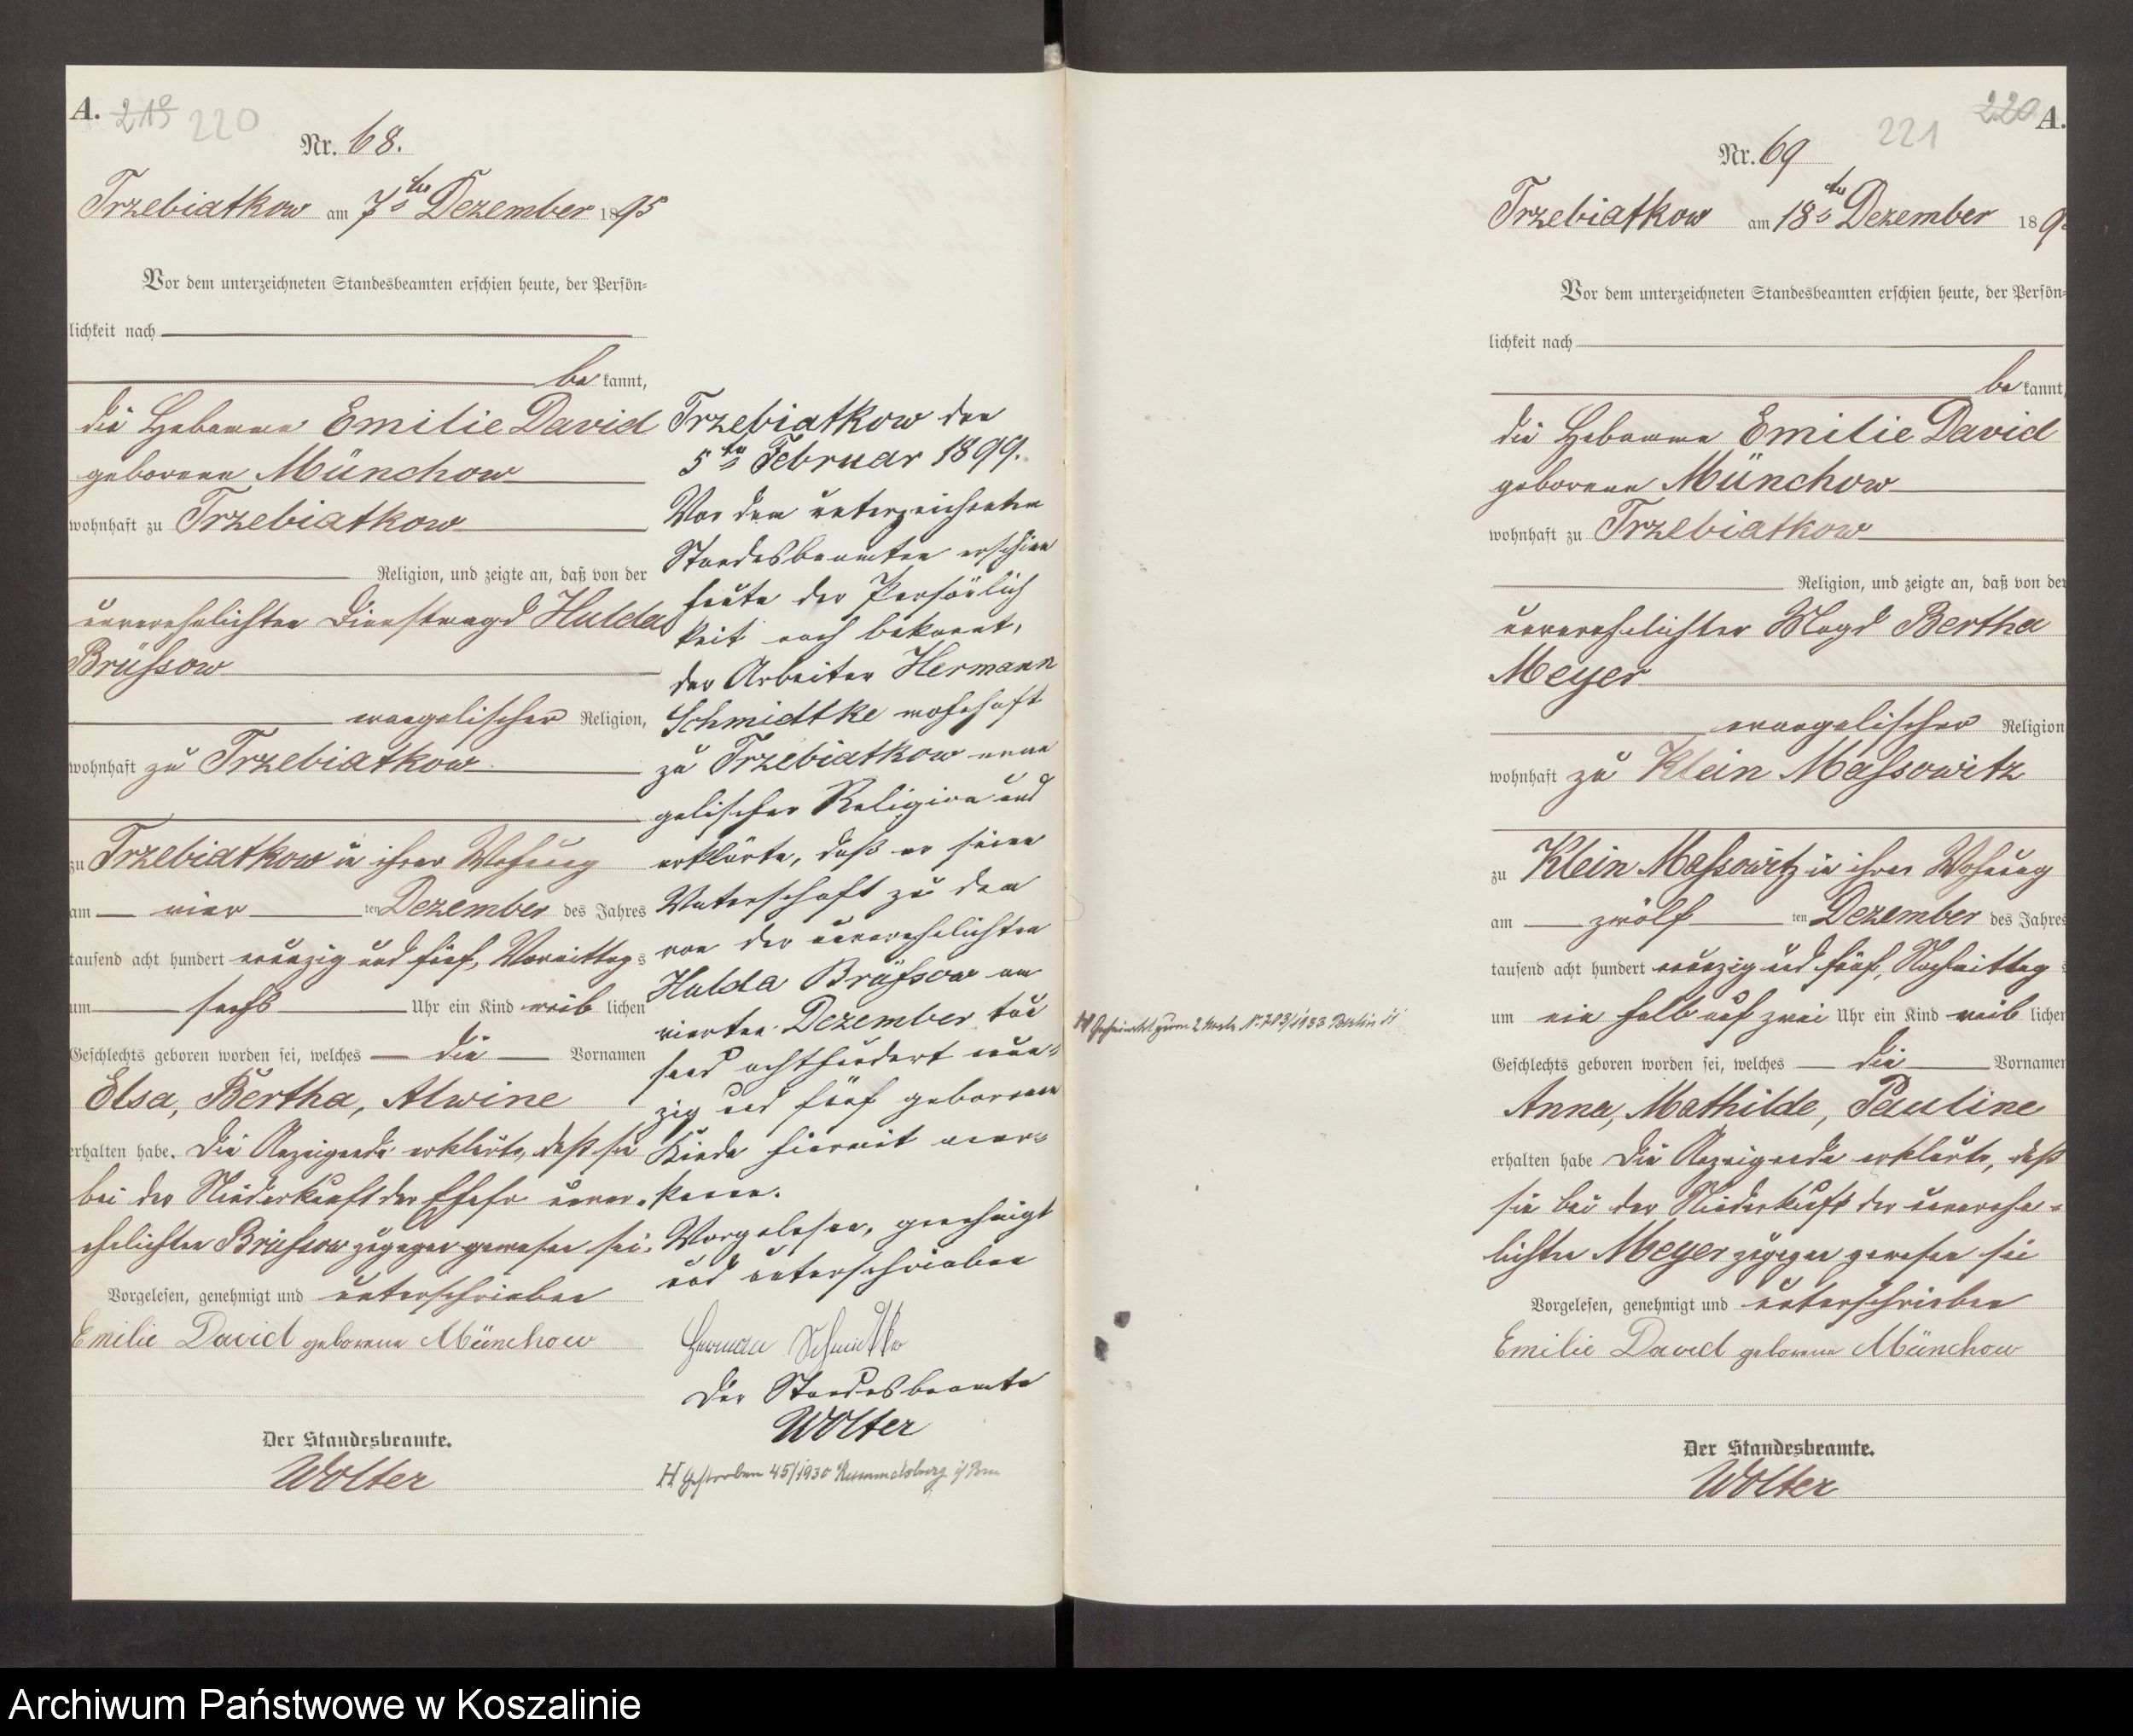 A. 219 220
Nr. 68.
Trzebiatkow am 7ten Dezember 1895
Vor dem unterzeichneten Standesbeamten erschien heute, der Persön-
lichkeit nach
be kannt,
die Hebamme Emilie David
geborene Münchow
wohnhaft zu Trzebiatkow
Religion, und zeigte an, daß von der
unverehelichten Dienstmagd Hulda
Brüssow
evangelischer Religion,
wohnhaft zu Trzebiatkow
zu Trzebiatkow in ihrer Wohnung
am vier ten Dezember des Jahres
tausend acht hundert neunzig und fünf, Vormittag s
um sechs Uhr ein Kind weib lichen
Geschlechts geboren worden sei, welches die Vornamen
Elsa, Bertha, Alwine
erhalten habe. Die Anzeigende erklärte, daß sie
bei der Niederkunft der unver-
ehelichten Brüssow zugegen gewesen sei.
Vorgelesen, genehmigt und unterschrieben
Emilie David geborene Münchow
Der Standesbeamte.
Wolter
Trzebiatkow den
5ten Februar 1899.
Vor dem unterzeichneten
Standesbeamten erschien
heute der Persönlich
keit nach bekannt,
der Arbeiter Hermann
Schmidtke wohnhaft
zu Trzebiatkow evan
gelischer Religion und
erklärte, daß er seine
Vaterschaft zu dem
von der unverehelichten
Hulda Brüssow am
vierten Dezember tau
send achthundert neun-
zig und fünf geborenen
Kinde hiermit aner-
kenne.
Vorgelesen, genehmigt
und unterschrieben
Herman Schmidtke
Der Standesbeamte
Wolter
H Gestorben 45/1930 Rummelsburg i/Pom
220 A.
221
Nr. 69
Trzebiatkow am 18ten Dezember 189
Vor dem unterzeichneten Standesbeamten erschien heute, der Persön-
lichkeit nach
be kannt,
die Hebamme Emilie David
geborene Münchow
wohnhaft zu Trzebiatkow
Religion, und zeigte an, daß von der
unverehelichter Magd Bertha
Meyer
evangelischer Religion
wohnhaft zu Klein Massowitz
zu Klein Massowitz in ihrer Wohnung
am zwölf ten Dezember des Jahres
tausend acht hundert neunzig und fünf, Nachmittag
um ein halb auf zwei Uhr ein Kind weib lichen
Geschlechts geboren worden sei, welches die Vornamen
Anna, Mathilde, Pauline
erhalten habe Die Anzeigende erklärte, daß
sie bei der Niederkunft der unverehe-
lichten Meyer zugegen gewesen sei
Vorgelesen, genehmigt und unterschrieben
Emilie David geborene Münchow
Der Standesbeamte.
Wolter
H Geheiratet zum 2. Male Nr. 703/1933 Berlin
Archiwum Państwowe w Koszalinie